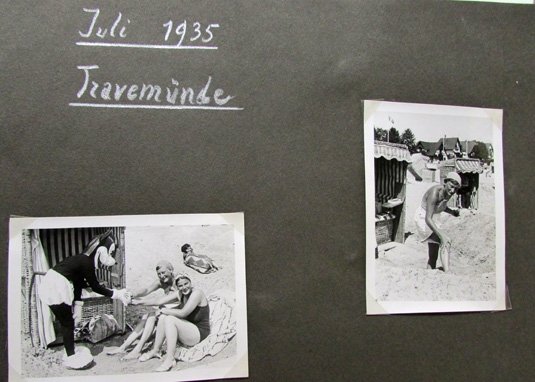 Juli 1935
Travemünde